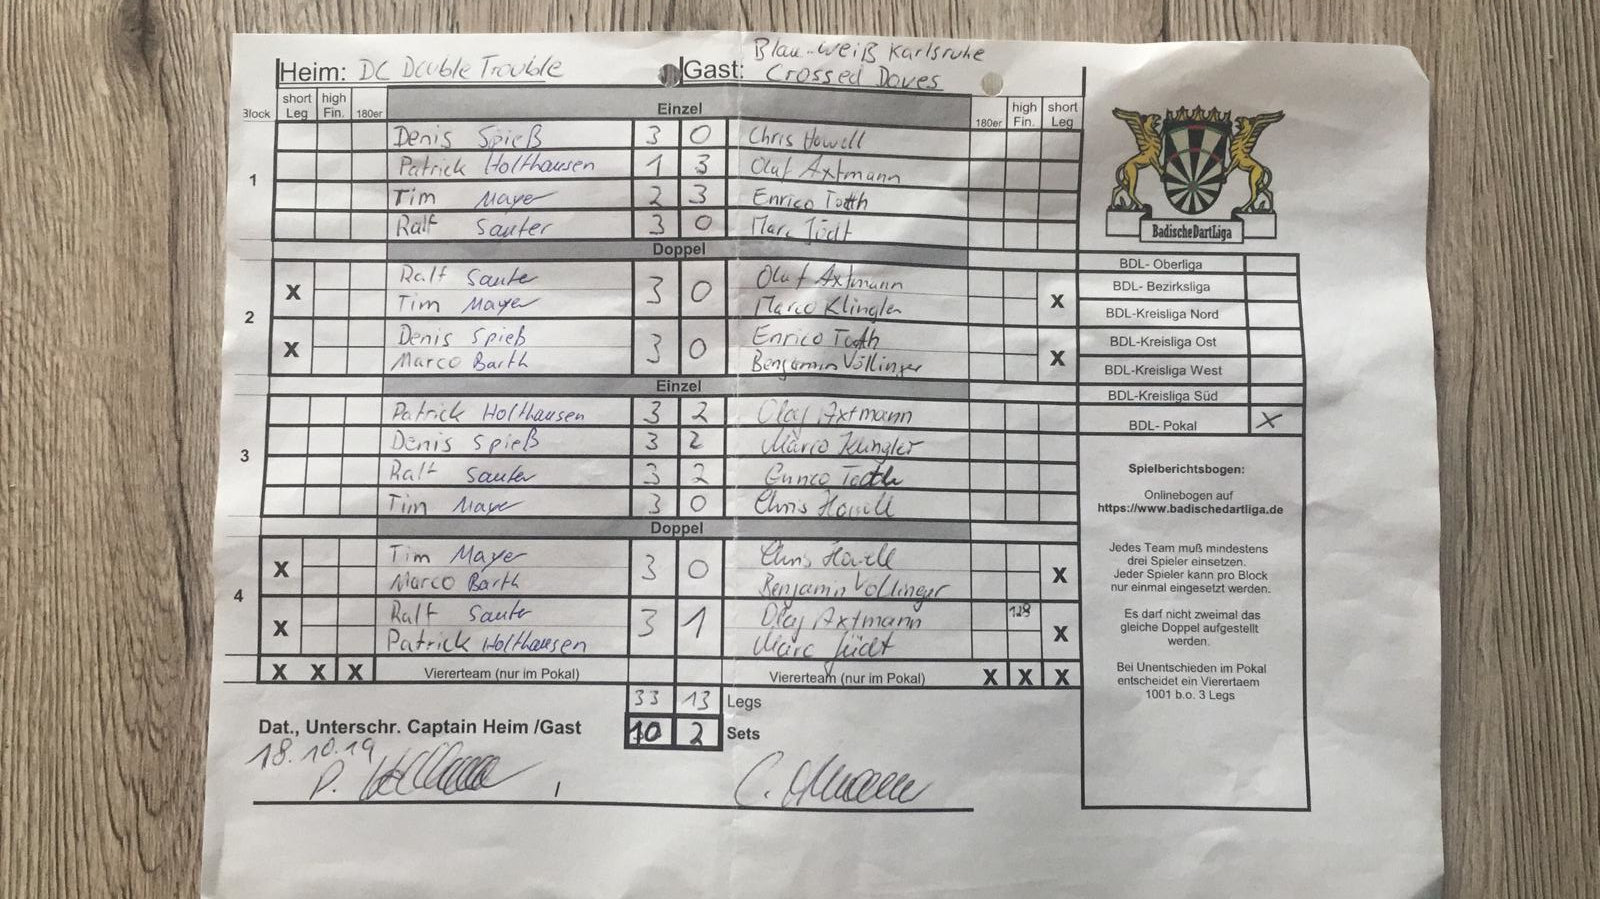 Blau-weiß Karlsruhe
Heim: DC Double Trouble Gast: Crossed Doves
Block short Leg high Fin. 180er Einzel 180er high Fin. short Leg
1
Denis Spieß 3 0 Chris Howell
Patrick Holthausen 1 3 Olaf Axtmann
Tim Mayer 2 3 Enrico Toth
Ralf Sauter 3 0 Marc Jüdt
Doppel
2
X Ralf Sauter 3 0 Olaf Axtmann X
Tim Mayer Marco Klingler
X Denis Spieß 3 0 Enrico Toth X
Marco Barth Benjamin Völlinger
Einzel
3
Patrick Holthausen 3 2 Olaf Axtmann
Denis Spieß 3 2 Marco Klingler
Ralf Sauter 3 2 Enrico Toth
Tim Mayer 3 0 Chris Howell
Doppel
4
X Tim Mayer 3 0 Chris Howell X
Marco Barth Benjamin Vollinger
X Ralf Sauter 3 1 Olaf Axtmann 128 X
Patrick Holthausen Marc Jüdt
X X X Viererteam (nur im Pokal) Viererteam (nur im Pokal) X X X
33 13 Legs
Dat., Unterschr. Captain Heim /Gast 10 2 Sets
18.10.19
BadischeDartLiga
BDL- Oberliga
BDL- Bezirksliga
BDL-Kreisliga Nord
BDL-Kreisliga Ost
BDL-Kreisliga West
BDL-Kreisliga Süd
BDL- Pokal X
Spielberichtsbogen:
Onlinebogen auf
https://www.badischedartliga.de
Jedes Team muß mindestens
drei Spieler einsetzen.
Jeder Spieler kann pro Block
nur einmal eingesetzt werden.
Es darf nicht zweimal das
gleiche Doppel aufgestellt
werden.
Bei Unentschieden im Pokal
entscheidet ein Vierertaem
1001 b.o. 3 Legs